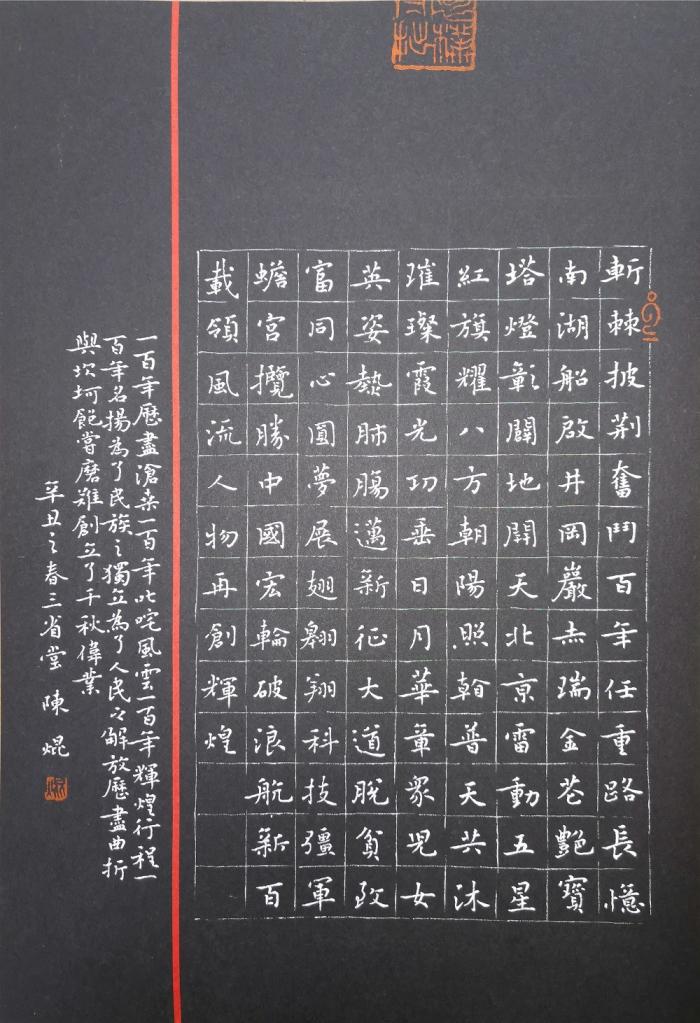 斬棘披荆奮鬥百年任重路長憶
南湖船啟井岡巖赤瑞金花艷寶
塔燈彰闢地開天北京雷動五星
紅旗耀八方朝陽照翰普天共沐
璀璨霞光功垂日月華章眾兒女
英姿熱肺腸邁新征大道脫貧致
富同心圓夢展翅翱翔科技彊軍
蟾宮攬勝中國宏輪破浪航新百
載領風流人物再創輝煌
一百年歷盡滄桑一百年叱咤風雲一百年輝煌行程一
百年名揚為了民族之獨立為了人民之解放歷盡曲折
與坎坷飽嘗磨難創立了千秋偉業
辛丑之春三省堂 陳焜